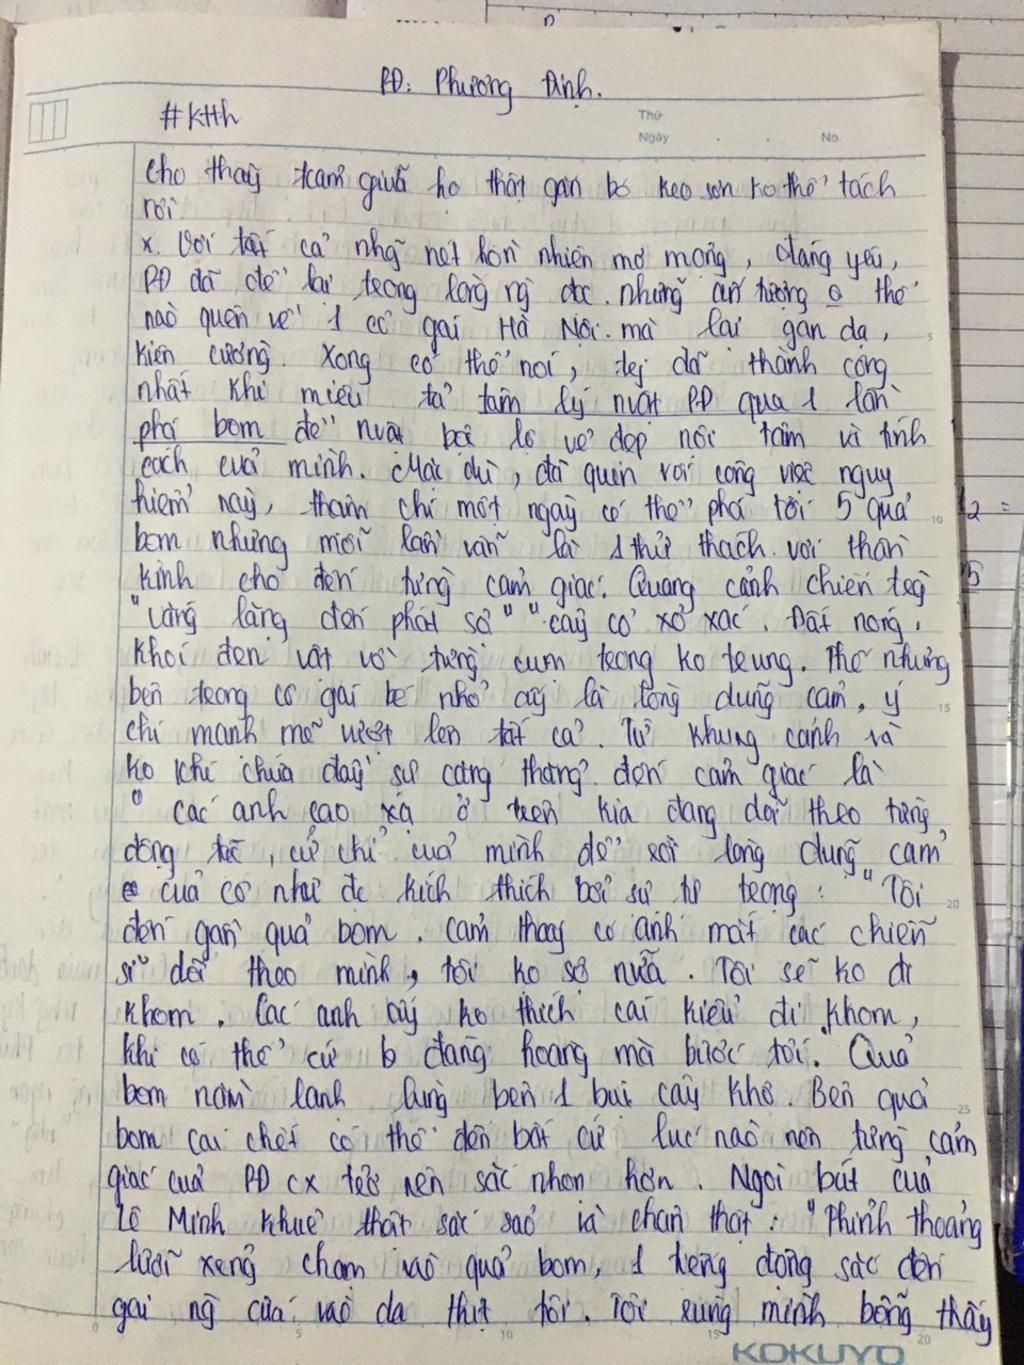 PĐ: Phương Định.
#KHh
Thứ
Ngày . . No.
cho thấy tcảm giữa họ thật gắn bó keo sơn ko thể tách
rời
x. Với tất cả nhg~ nét hồn nhiên mơ mộng, đáng yêu,
PĐ đã để lại trong lòng ng đọc những ấn tượng o thể
nào quên về 1 cô gái Hà Nội mà lại gan dạ,
kiên cường. Xong có thể nói, tg đã thành công
nhất khi miêu tả tâm lý nvật PĐ qua 1 lần
phá bom để nvật bộ lộ vẻ đẹp nội tâm và tính
cách của mình. Mặc dù, đã quen với công việc nguy
hiểm này, thậm chí một ngày có thể phá tới 5 quả
bom nhưng mỗi lần vẫn là 1 thử thách với thần
kinh cho đến từng cảm giác. Quang cảnh chiến
"vắng lặng đến phát sợ" "cây cỏ xơ xác. Đất nóng.
Khói đen vật vờ từng cụm trong ko trung. Thế nhưng
bên trong cô gái bé nhỏ ấy là lòng dũng cảm, ý
chí mạnh mẽ vượt lên tất cả. Từ khung cảnh và
ko khí chứa đầy sự căng thẳng đến cảm giác là
" các anh cao xạ ở trên kia đang dõi theo từng
động tác, cử chỉ của mình để rồi lòng dũng cảm
của cô như đc kích thích bởi sự tự trọng: "Tôi
đến gần quả bom. Cảm thấy có ánh mắt các chiến
sĩ dõi theo mình, tôi ko sợ nữa. Tôi sẽ ko đi
khom. Các anh ấy ko thích cái kiểu đi khom,
khi có thể cứ đàng hoàng mà bước tới. Quả
bom nằm lạnh lùng bên 1 bụi cây khô. Bên quả
bom cái chết có thể đến bất cứ lúc nào nên từng cảm
giác của PĐ cx trở nên sắc nhọn hơn. Ngòi bút của
Lê Minh Khuê thật sắc sảo và chân thật: "Thỉnh thoảng
lưỡi xẻng chạm vào quả bom, 1 tiếng động sắc đến
gai ng cứa vào da thịt tôi. Tôi rùng mình bỗng thấy
KOKUYO